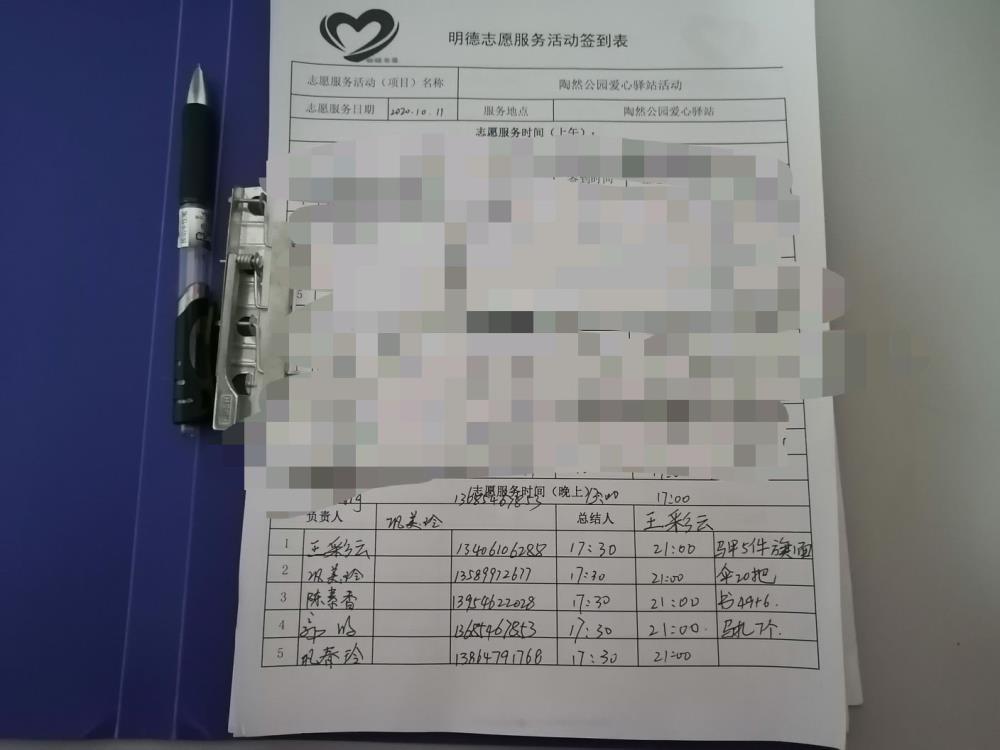 明德志愿服务活动签到表
志愿服务活动（项目）名称 陶然公园爱心驿站活动
志愿服务日期 2020.10.11 服务地点 陶然公园爱心驿站
志愿服务时间（上午）：
签到时间
5
志愿服务时间（晚上）
13685467853 17:00
负责人 巩美玲 总结人 王彩云
1 王彩云 13406106288 17:30 21:00 马甲5件旗1面
2 巩美玲 13589972677 17:30 21:00 伞20把
3 陈素香 13954622028 17:30 21:00 书44+6.
4 郭 13685467853 17:30 21:00. 马扎7个.
5 巩春玲 13864791768 17:30 21:00